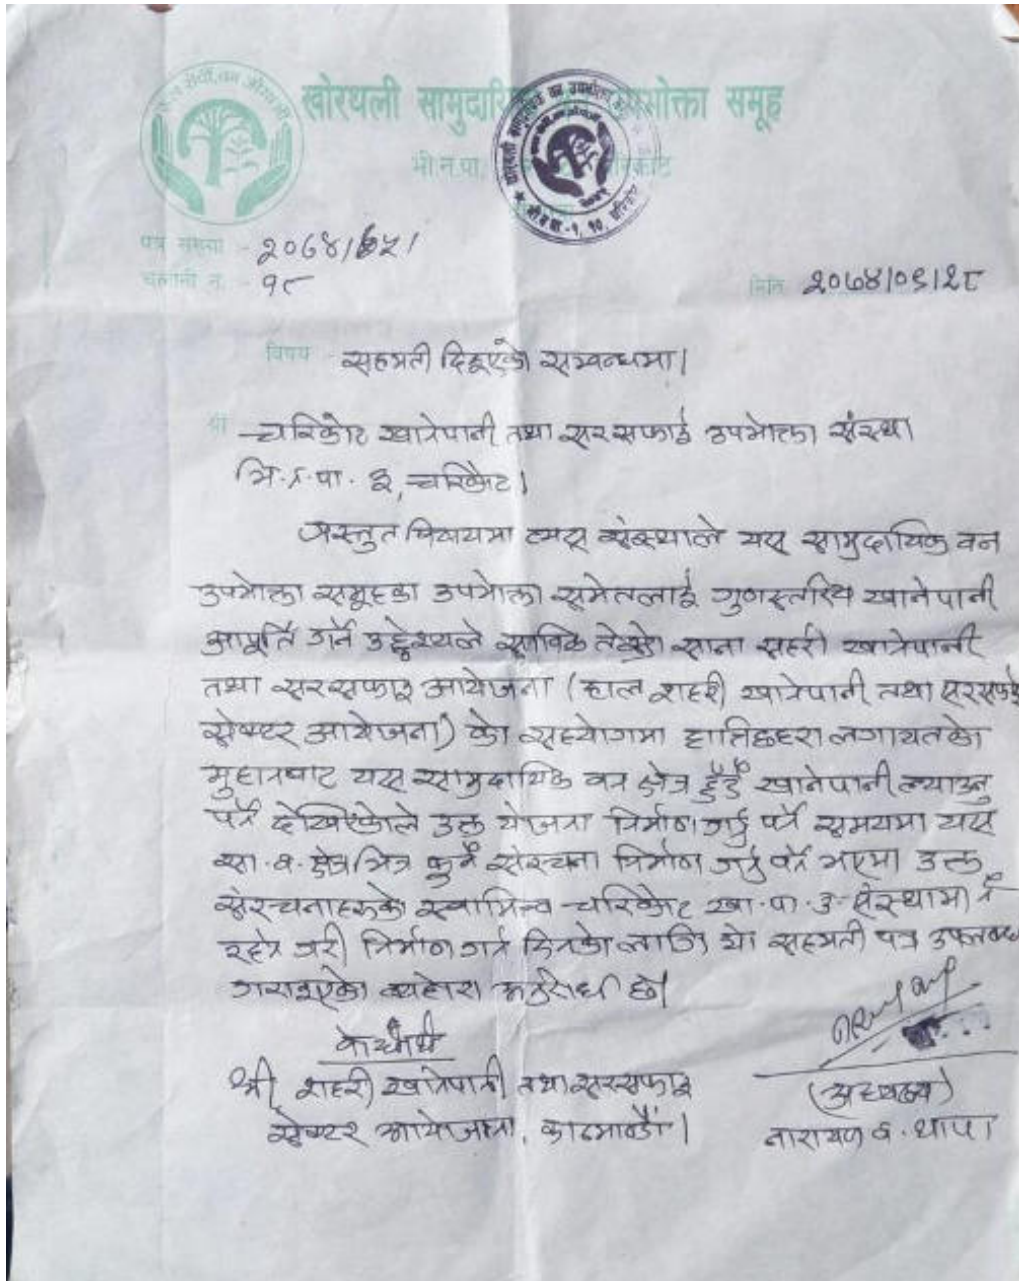 खोरथली सामुदायिक वन उपभोक्ता समूह
भी.न.पा.
पत्र संख्या - २०७४/७५।
चलानी न. - १८
मिति २०७४/०९/२८
विषय - सहमती दिइएको सम्वन्धमा।
श्री चरिकोट खानेपानी तथा सरसफाई उपभोक्ता संस्था
भि.न.पा. ३, चरिकोट।
प्रस्तुत विषयमा त्यस संस्थाले यस सामुदायिक वन
उपभोक्ता समूहका उपभोक्ता समेतलाई गुणस्तरिय खानेपानी
आपूर्ति गर्ने उद्देश्यले साविक तेस्रो साना सहरी खानेपानी
तथा सरसफाइ आयोजना (हाल शहरी खानेपानी तथा सरसफाई
सेक्टर आयोजना) को सहयोगमा लगायतका
मुहानबाट यस सामुदायिक वन क्षेत्र हुँदै खानेपानी ल्याउनु
पर्ने देखिएकोले उक्त योजना निर्माण गर्नु पर्ने समयमा यस
सा.व. क्षेत्रभित्र कुनै संरचना निर्माण गर्नु पर्ने भएमा उक्त
संरचनाहरुको स्वामित्व चरिकोट खा.पा.उ. संस्थामा नै
रहने गरी निर्माण गर्न दिनको लागि यो सहमती पत्र उपलब्ध
गराइएको व्यहोरा अनुरोध छ।
बोधार्थ
श्री शहरी खानेपानी तथा सरसफाइ
सेक्टर आयोजना, काठमाण्डौं।
(अध्यक्ष)
नारायण ब. थापा